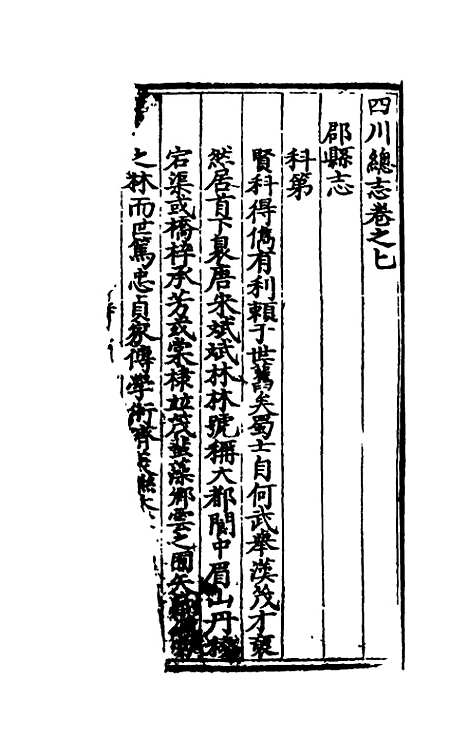 四川總志卷之七
郡縣志
科第
賢科得儁有利賴于世舊矣蜀士自何武舉漢茂才裒
然居首下曁唐宋斌斌林林號稱大都閬中眉山丹稜
宕渠或橋梓承芳或棠棣並茂摛藻鄉雲之囿矢
之林而世篤忠貞家傳學術濟